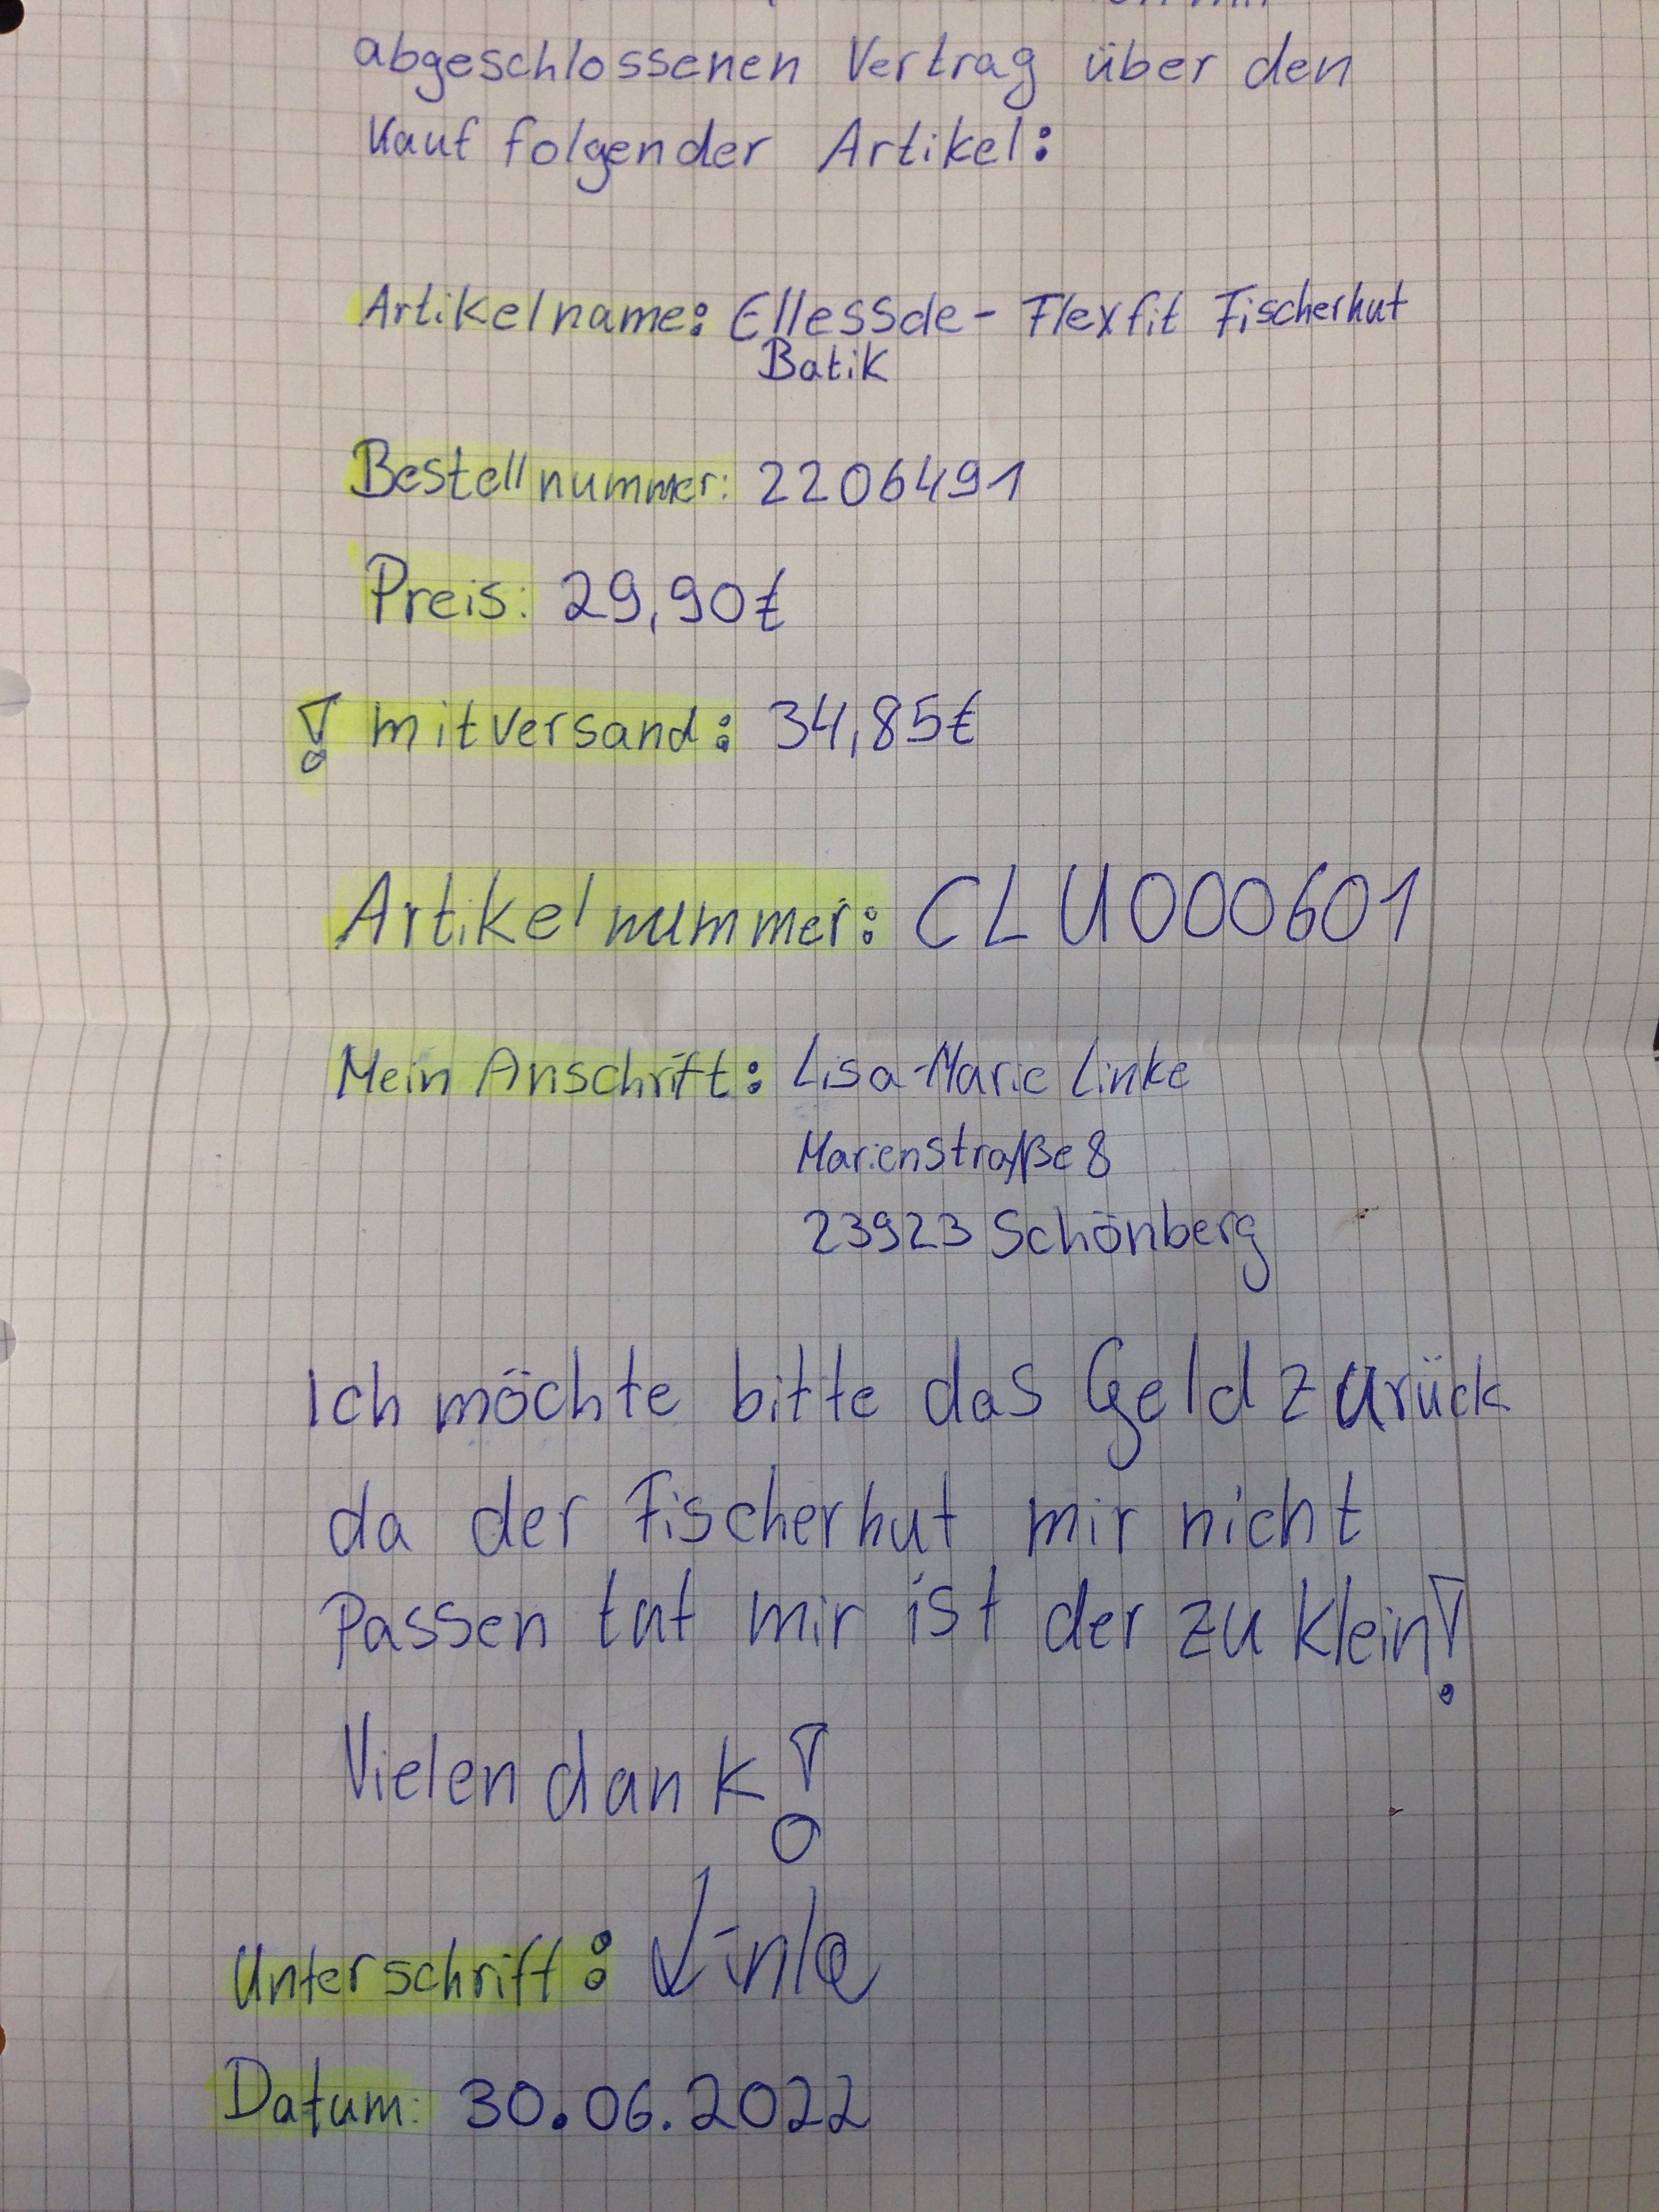 abgeschlossenen Vertrag über den
Kauf folgender Artikel:
Artikelname: Ellessde - Flexfit Fischerhut
Batik
Bestellnummer: 2206491
Preis: 29,90€
! mitversand: 34,85€
Artikelnummer: CLU000601
Mein Anschrift: Lisa-Marie Linke
Marienstraße 8
23923 Schönberg
Ich möchte bitte das Geld zurück
da der Fischerhut mir nicht
Passen tut mir ist der zu klein!
Vielen dank!
Unterschrift: Linke
Datum: 30.06.2022